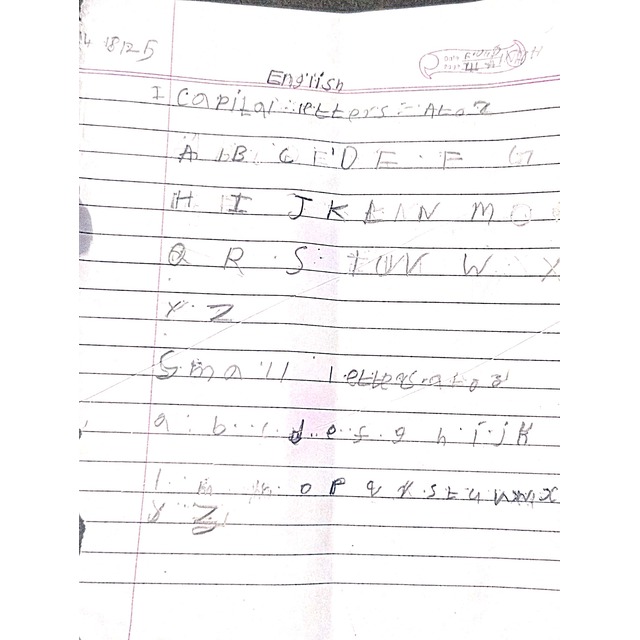 4 18125
English
I Capital letters = A to z
A B C D E F G
H I J K L N M O
Q R S T U V W X
Y Z
Small letters a to z
a b c d e f g h i j k
l m n o p q r s t u v w x
y z